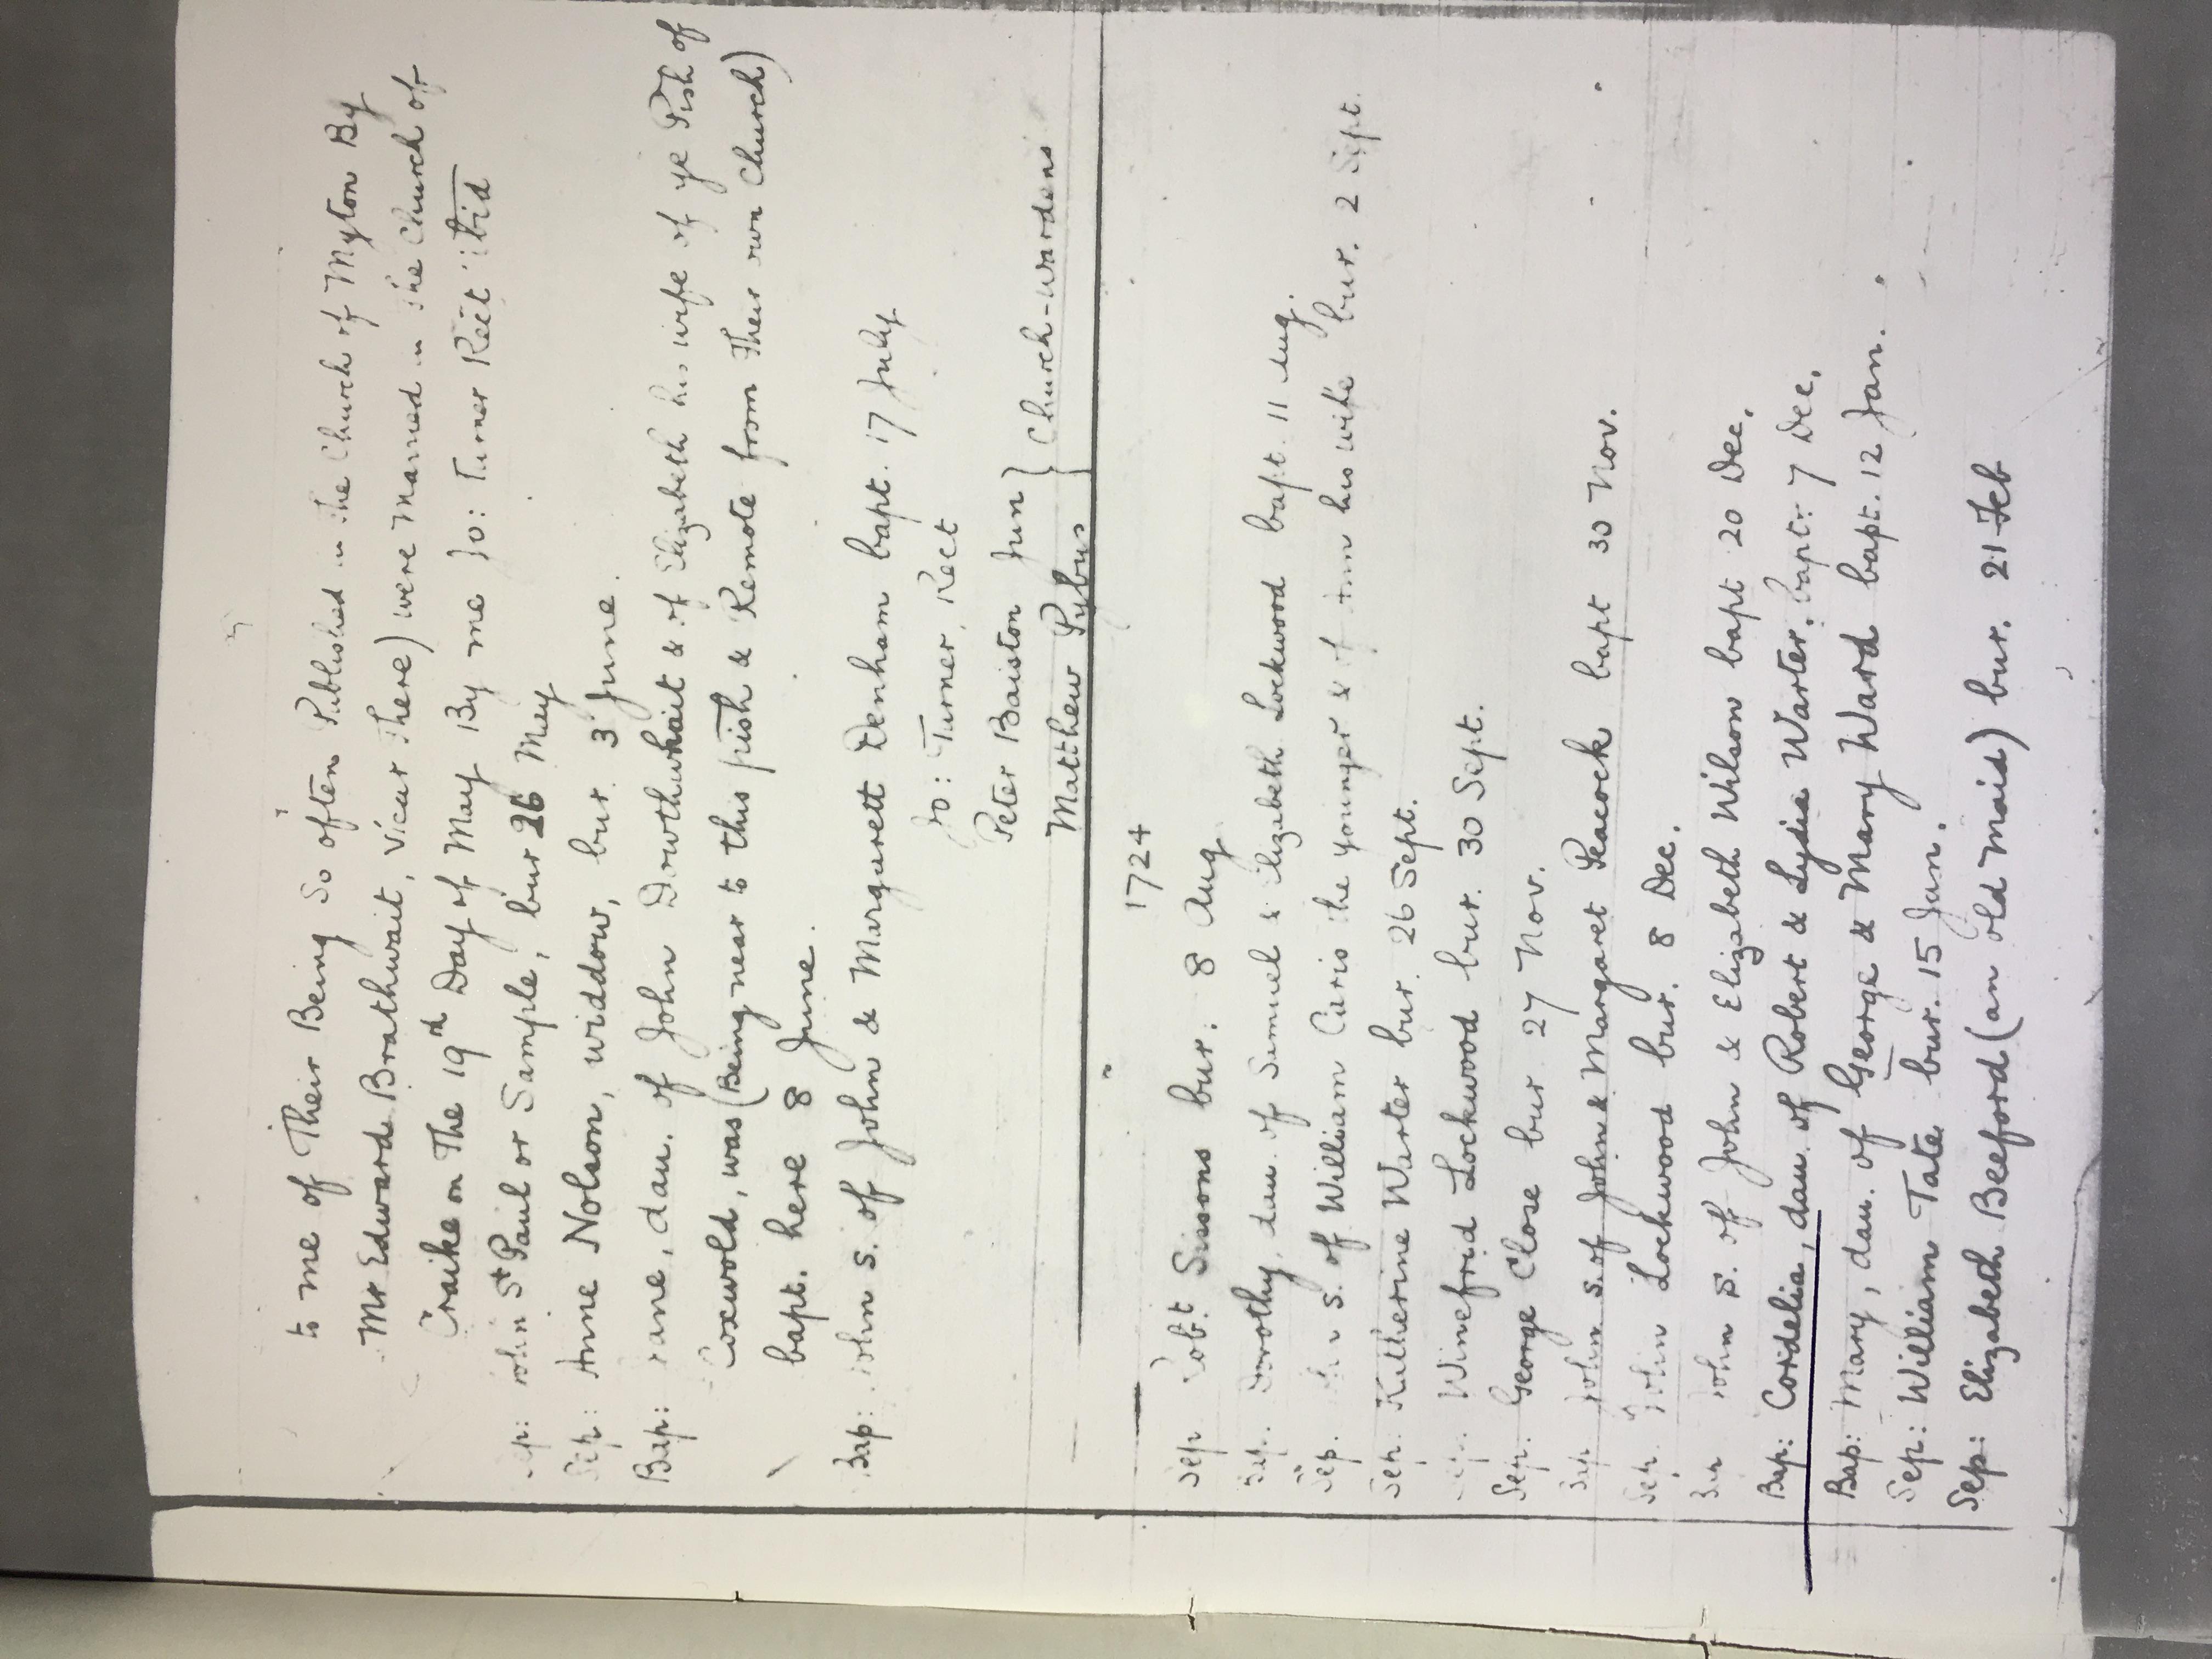 to me of Their Being So often Published in the Church of Myton By
Mr Edwarde Brathwait, Vicar there) were Married in the Church of
Craike on The 19th Day of May By me Jo: Turner Rect ibid
Sep: John St Paul or Sample, bur 26 May
Sep: Anne Nolson, widdow, bur. 3 June.
Bap: Jane, dau. of John Dowthwhait & of Elizabeth his wife of ye Pish of
Coxwold, was (Being near to this pish & Remote from their own Church)
bapt. here 8 June.
Bap: John s. of John & Margarett Denham bapt. 17 July
Jo: Turner, Rect
Peter Baiston Jun } Church-Wardens
Matthew Pybus
1724
Sep Robt. Sissons bur. 8 Aug
Bap. Dorothy, dau. of Samuel & Elizabeth Lockwood bapt. 11 Aug.
Sep. John s. of William Caris the younger & of Ann his wife bur. 2 Sept.
Sep. Katherine Warter bur. 26 Sept.
Sep. Winefrid Lockwood bur. 30 Sept.
Sep. George Close bur 27 Nov.
Bap John s. of John & Margaret Peacock bapt 30 Nov.
Sep. John Lockwood bur. 8 Dec.
Bap John s. of John & Elizabeth Wilson bapt 20 Dec.
Bap: Cordelia, dau. of Robert & Lydia Warter. bapt: 7 Dec.
Bap: Mary, dau. of George & Mary Ward bapt. 12 Jan.
Sep: William Tate bur. 15 Jan.
Sep: Elizabeth Beeford (an old maid) bur. 21 Feb